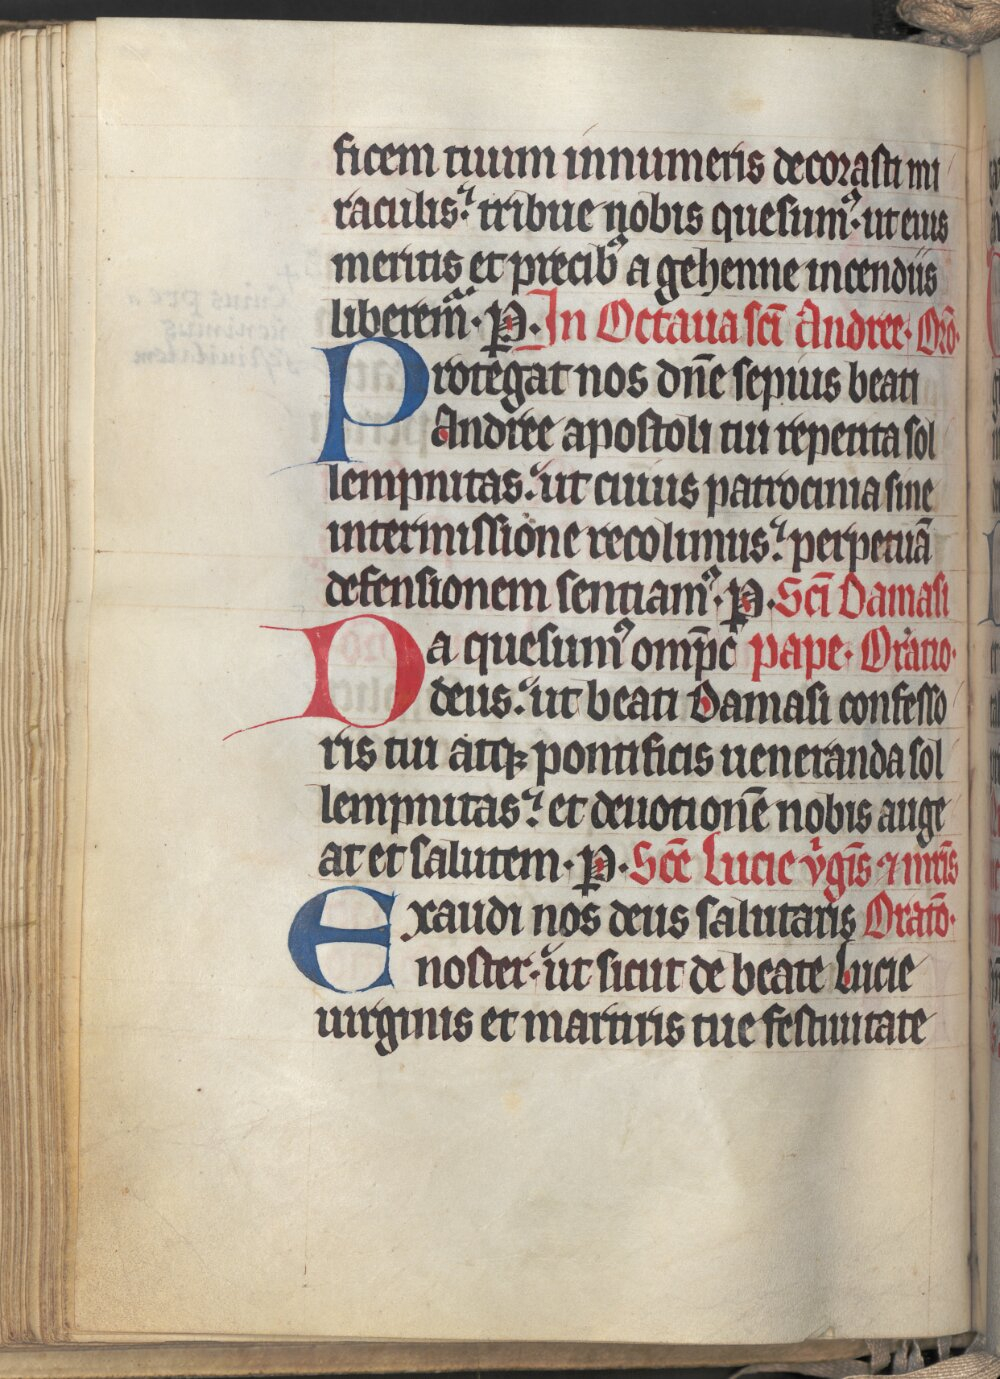 ficem tuum innumeris decorasti mi
raculis: tribue nobis quesumꝰ· ut eius
meritis et precibꝰ a gehenne incendiis
liberemꝰ· P. In Octaua sc̄i Andree· Or̄o·
Protegat nos dn̄e sepius beati
Andree apostoli tui repetita sol
lempnitas: ut cuius patrocinia sine
intermissione recolimus: perpetuā
defensionem sentiamꝰ· P. Sc̄i Damasi
Da quesumꝰ omp̄c pape· Oratio·
deus: ut beati Damasi confesso
ris tui atqꝫ pontificis ueneranda sol
lempnitas: et deuotionē nobis auge
at et salutem· P. Sc̄e Lucie v̄gīs ⁊ mr̄is
Exaudi nos deus salutaris Oratō·
noster· ut sicut de beate Lucie
uirginis et martiris tue festiuitate